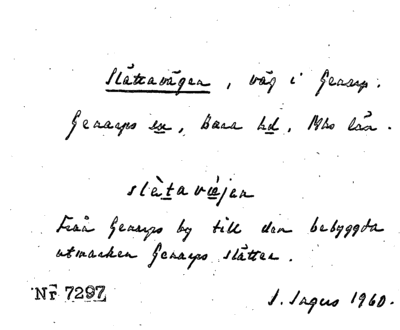 Slättavägen, väg i Genarp.
Genarps sn, Bara hd, Mhs län.
slètavæjen
Från Genarps by till den bebyggda
utmarken Genarps slätten.
Nr 7297
S. Ingers 1960.